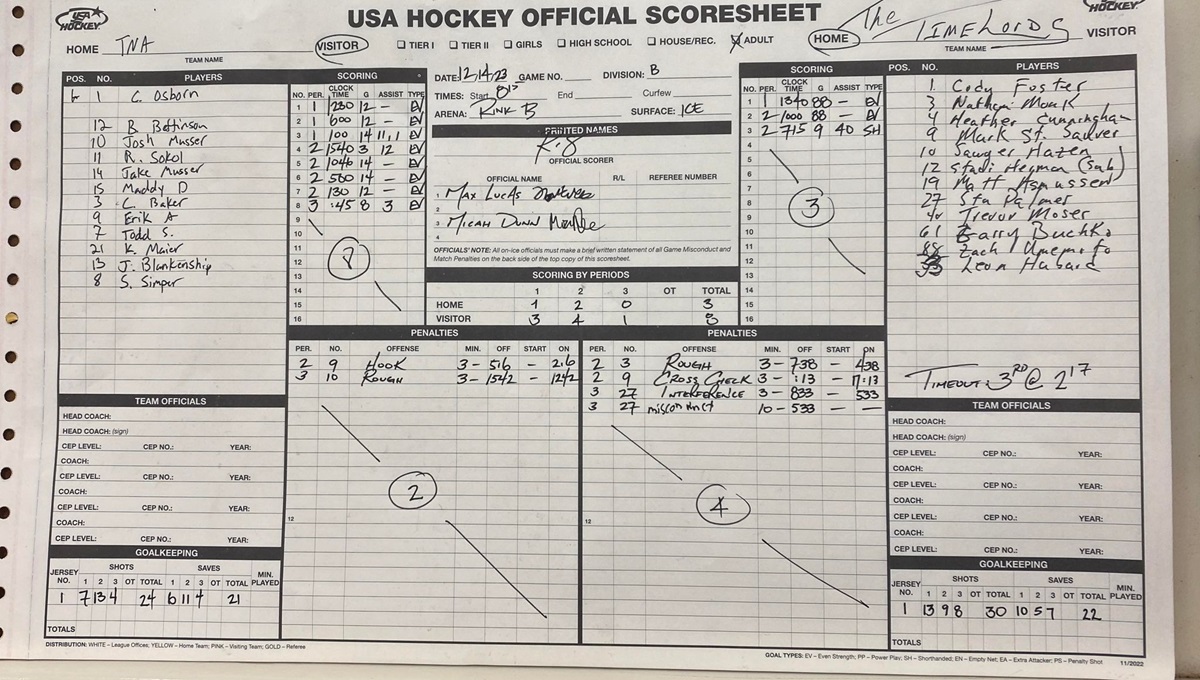 USA HOCKEY
USA HOCKEY OFFICIAL SCORESHEET
HOCKEY
HOME TNA VISITOR
TEAM NAME
TIER I TIER II GIRLS HIGH SCHOOL HOUSE/REC. ADULT
HOME The TIMELORDS VISITOR
TEAM NAME
POS. NO. PLAYERS
1 C. Osborn
12 B. Bettinson
10 Josh Musser
11 R. Sokol
14 Jake Musser
15 Maddy D
3 C. Baker
9 Erik A
7 Todd S.
21 K. Maier
13 J. Blankenship
8 S. Simper
SCORING
NO. PER. CLOCK TIME G ASSIST TYPE
1 1 230 12 - EV
2 1 600 12 - EV
3 1 100 14 11,1 EV
4 2 1540 3 12 EV
5 2 1046 14 - EV
6 2 580 14 - EV
7 2 130 12 - EV
8 3 :45 8 3 EV
9
10
11
12
13
14
15
16
8
DATE: 12/14/23 GAME NO. DIVISION: B
TIMES: Start 815 End Curfew
ARENA: RINK B SURFACE: ICE
PRINTED NAMES
OFFICIAL SCORER
OFFICIAL NAME R/L REFEREE NUMBER
1 MAX LUCAS
3 MICAH DUNN
4
OFFICIALS' NOTE: All on-ice officials must make a brief written statement of all Game Misconduct and
Match Penalties on the back side of the top copy of this scoresheet.
SCORING BY PERIODS
1 2 3 OT TOTAL
HOME 1 2 0 3
VISITOR 3 4 1 8
SCORING
NO. PER. CLOCK TIME G ASSIST TYPE
1 1 1340 88 - EV
2 2 1000 88 - EV
3 2 715 9 40 SH
4
5
6
7
8
9
10
11
12
13
14
15
16
3
POS. NO. PLAYERS
1 Cody Foster
3 Nathan Monk
4 Heather Cunningham
9 Mark St. Sauver
10 Sawyer Hazen
12 (Sub)
19 Matt Asmussen
27 Stu Palmer
40 Trevor Moser
61 Barry
88 Zach
Leon
PENALTIES
PER. NO. OFFENSE MIN. OFF START ON
2 9 HOOK 3 - 516 - 216
3 10 ROUGH 3 - 1542 - 1242
12
2
PENALTIES
PER. NO. OFFENSE MIN. OFF START ON
2 3 ROUGH 3 - 738 - 438
2 9 CROSS CHECK 3 - :13 - 17:13
3 27 INTERFERENCE 3 - 833 - 533
3 27 misconduct 10 - 533 - -
12
4
TIMEOUT: 3RD @ 217
TEAM OFFICIALS
HEAD COACH:
HEAD COACH: (sign)
CEP LEVEL: CEP NO.: YEAR:
COACH:
CEP LEVEL: CEP NO.: YEAR:
COACH:
CEP LEVEL: CEP NO.: YEAR:
COACH:
CEP LEVEL: CEP NO.: YEAR:
GOALKEEPING
JERSEY NO. SHOTS SAVES MIN. PLAYED
1 2 3 OT TOTAL 1 2 3 OT TOTAL
1 7 13 4 24 6 11 4 21
TOTALS
TEAM OFFICIALS
HEAD COACH:
HEAD COACH: (sign)
CEP LEVEL: CEP NO.: YEAR:
COACH:
CEP LEVEL: CEP NO.: YEAR:
COACH:
CEP LEVEL: CEP NO.: YEAR:
COACH:
CEP LEVEL: CEP NO.: YEAR:
GOALKEEPING
JERSEY NO. SHOTS SAVES MIN. PLAYED
1 2 3 OT TOTAL 1 2 3 OT TOTAL
1 13 9 8 30 10 5 7 22
TOTALS
DISTRIBUTION: WHITE – League Offices, YELLOW – Home Team; PINK – Visiting Team; GOLD – Referee
GOAL TYPES: EV – Even Strength; PP – Power Play; SH – Shorthanded; EN – Empty Net; EA – Extra Attacker; PS – Penalty Shot 11/2022